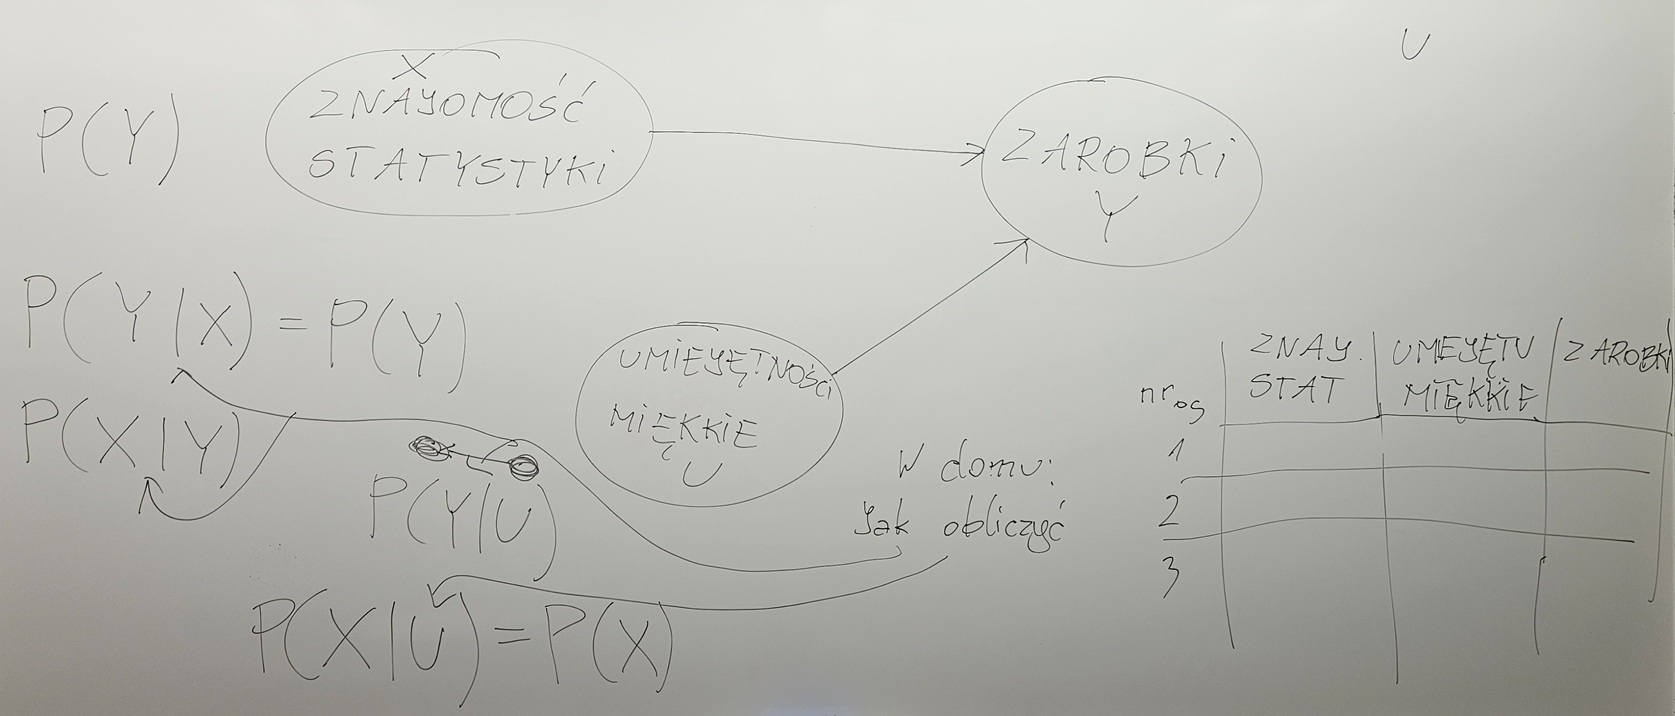 U
X
ZNAJOMOŚĆ
STATYSTYKI
P(Y)
ZAROBKI
Y
P(Y|X) = P(Y)
UMIEJĘTNOŚCI
MIĘKKIE
U
P(X|Y)
P(Y|U)
P(X|U) = P(X)
W domu:
Jak obliczyć
nr os
ZNAJ.
STAT
UMEJĘTN
MIĘKKIE
ZAROBKI
1
2
3